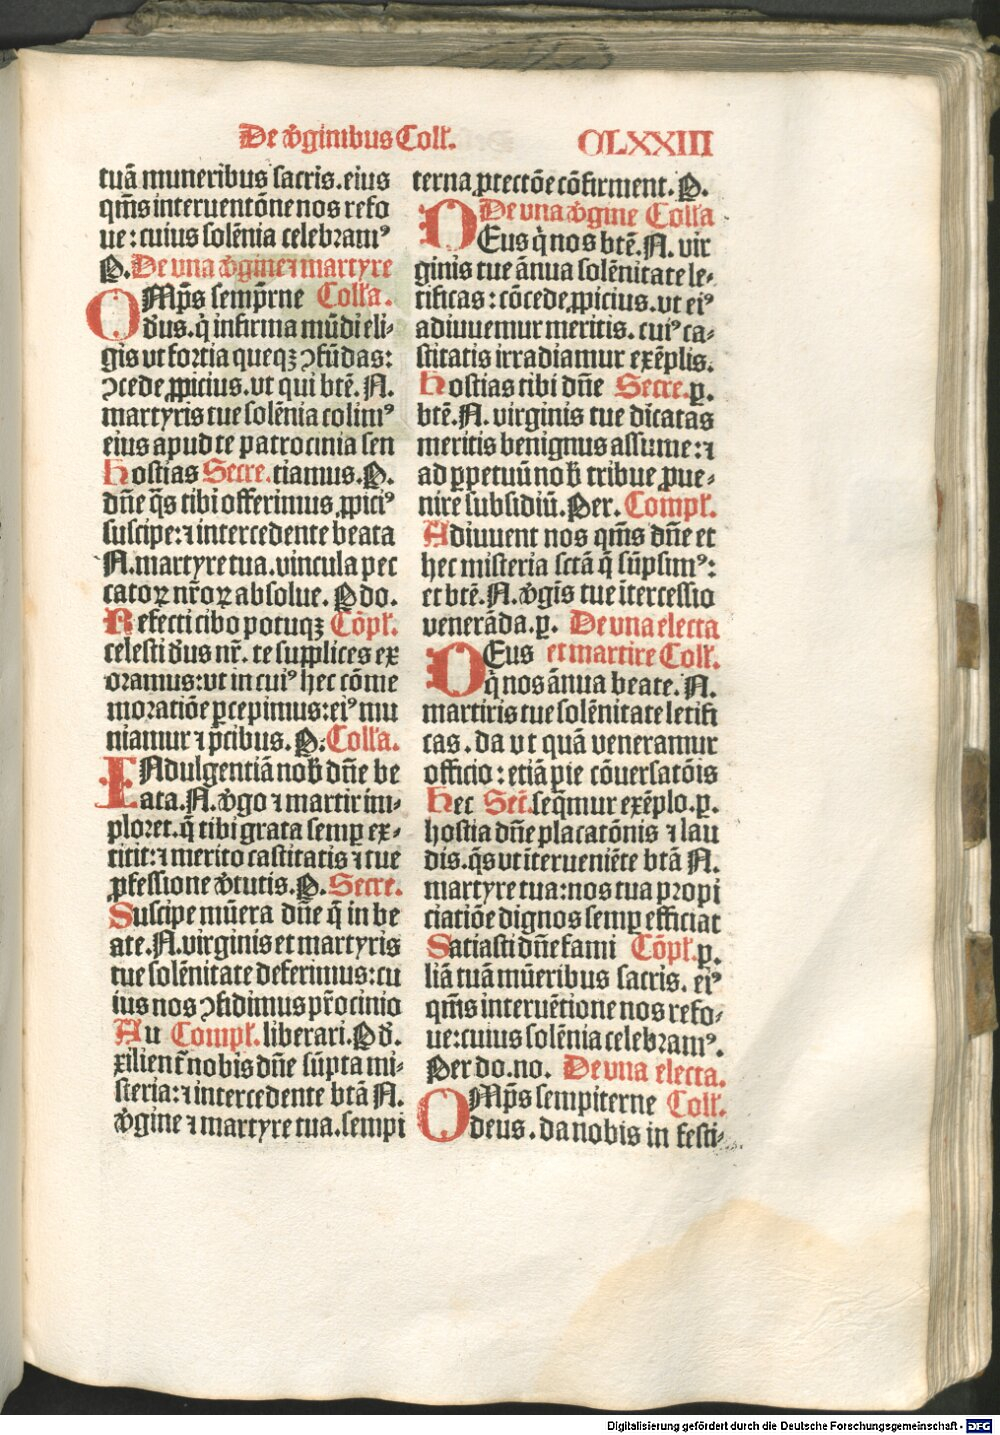 De v̾ginibus Coll̃.
CLXXIII
tuā muneribus sacris. eius
qm̄s interuentōne nos refo
ue: cuius solēnia celebramꝰ
P. De una v̾gine ⁊ martyre
OMp̄s semp̄rne Coll̃a.
d̾us. q̇ infirma mūdi eli⸗
gis ut fortia queqꝫ ꝯfūdas:
ꝯcede ꝓpicius. ut qui btē. N.
martyris tue solēnia colimꝰ
eius apud te patrocinia sen
Hostias Secre. tiamus. P.
dn̄e q̄s tibi offerimus ꝓpiciꝰ
suscipe: ⁊ intercedente beata
N. martyre tua. vincula pec
catoꝝ nr̄oꝝ absolue. P do.
Refecti cibo potuqꝫ Cōpl̃.
celesti d̾us nr̄. te supplices ex
oramus: ut in cuiꝰ hec cōme
moratiōe ꝑcepimus: eiꝰ mu
niamur ⁊ p̄cibus. P: Coll̃a.
INdulgentiā nob̃ dn̄e be
ata. N. v̾go ⁊ martir im⸗
ploret. q̄ tibi grata semꝑ ex⸗
titit: ⁊ merito castitatis ⁊ tue
ꝓfessione v̾tutis. P. Secre.
Suscipe mūera dn̄e q̄ in be
ate. N. virginis et martyris
tue solēnitate deferimus: cu
ius nos ꝯfidimus pr̄ocinio
Au Compl̃. liberari. P d̾.
xilient̃ nobis dn̄e sūpta mi⸗
steria: ⁊ intercedente btā N.
v̾gine ⁊ martyre tua. sempi
terna ꝓtectōe cōfirment. P.
De una v̾gine Coll̃a
DEus q̇ nos btē. N. vir
ginis tue ānua solēnitate le⸗
tificas: cōcede ꝓpicius. ut eiꝰ
adiuuemur meritis. cuiꝰ ca⸗
stitatis irradiamur exēplis.
Hostias tibi dn̄e Secre. p.
btē. N. virginis tue dicatas
meritis benignus assume: ⁊
ad ꝑpetuū nob̃ tribue ꝓue⸗
nire subsidiū. Per. Compl̃.
Adiuuent nos qm̄s dn̄e et
hec misteria sctā q̄ sūpsimꝰ:
et btē. N. v̾gīs tue ītercessio
venerāda. p. De una electa
DEus et martire Coll̃.
q̇ nos ānua beate. N.
martiris tue solēnitate letifi
cas. da ut quā veneramur
officio: etiā pie cōuersatōis
Hec Secr̃. seq̄mur exēplo. p.
hostia dn̄e placatōnis ⁊ lau
dis. q̄s ut īterueniēte btā N.
martyre tua: nos tua propi
ciatiōe dignos semꝑ efficiat
Satiasti dn̄e fami Cōpl̃. p.
liā tuā mūeribus sacris. eiꝰ
qm̄s interuētione nos refo⸗
ue: cuius solēnia celebramꝰ.
Per do. no. De una electa.
OMp̄s sempiterne Coll̃.
deus. da nobis in festi⸗
Digitalisierung gefördert durch die Deutsche Forschungsgemeinschaft - DFG